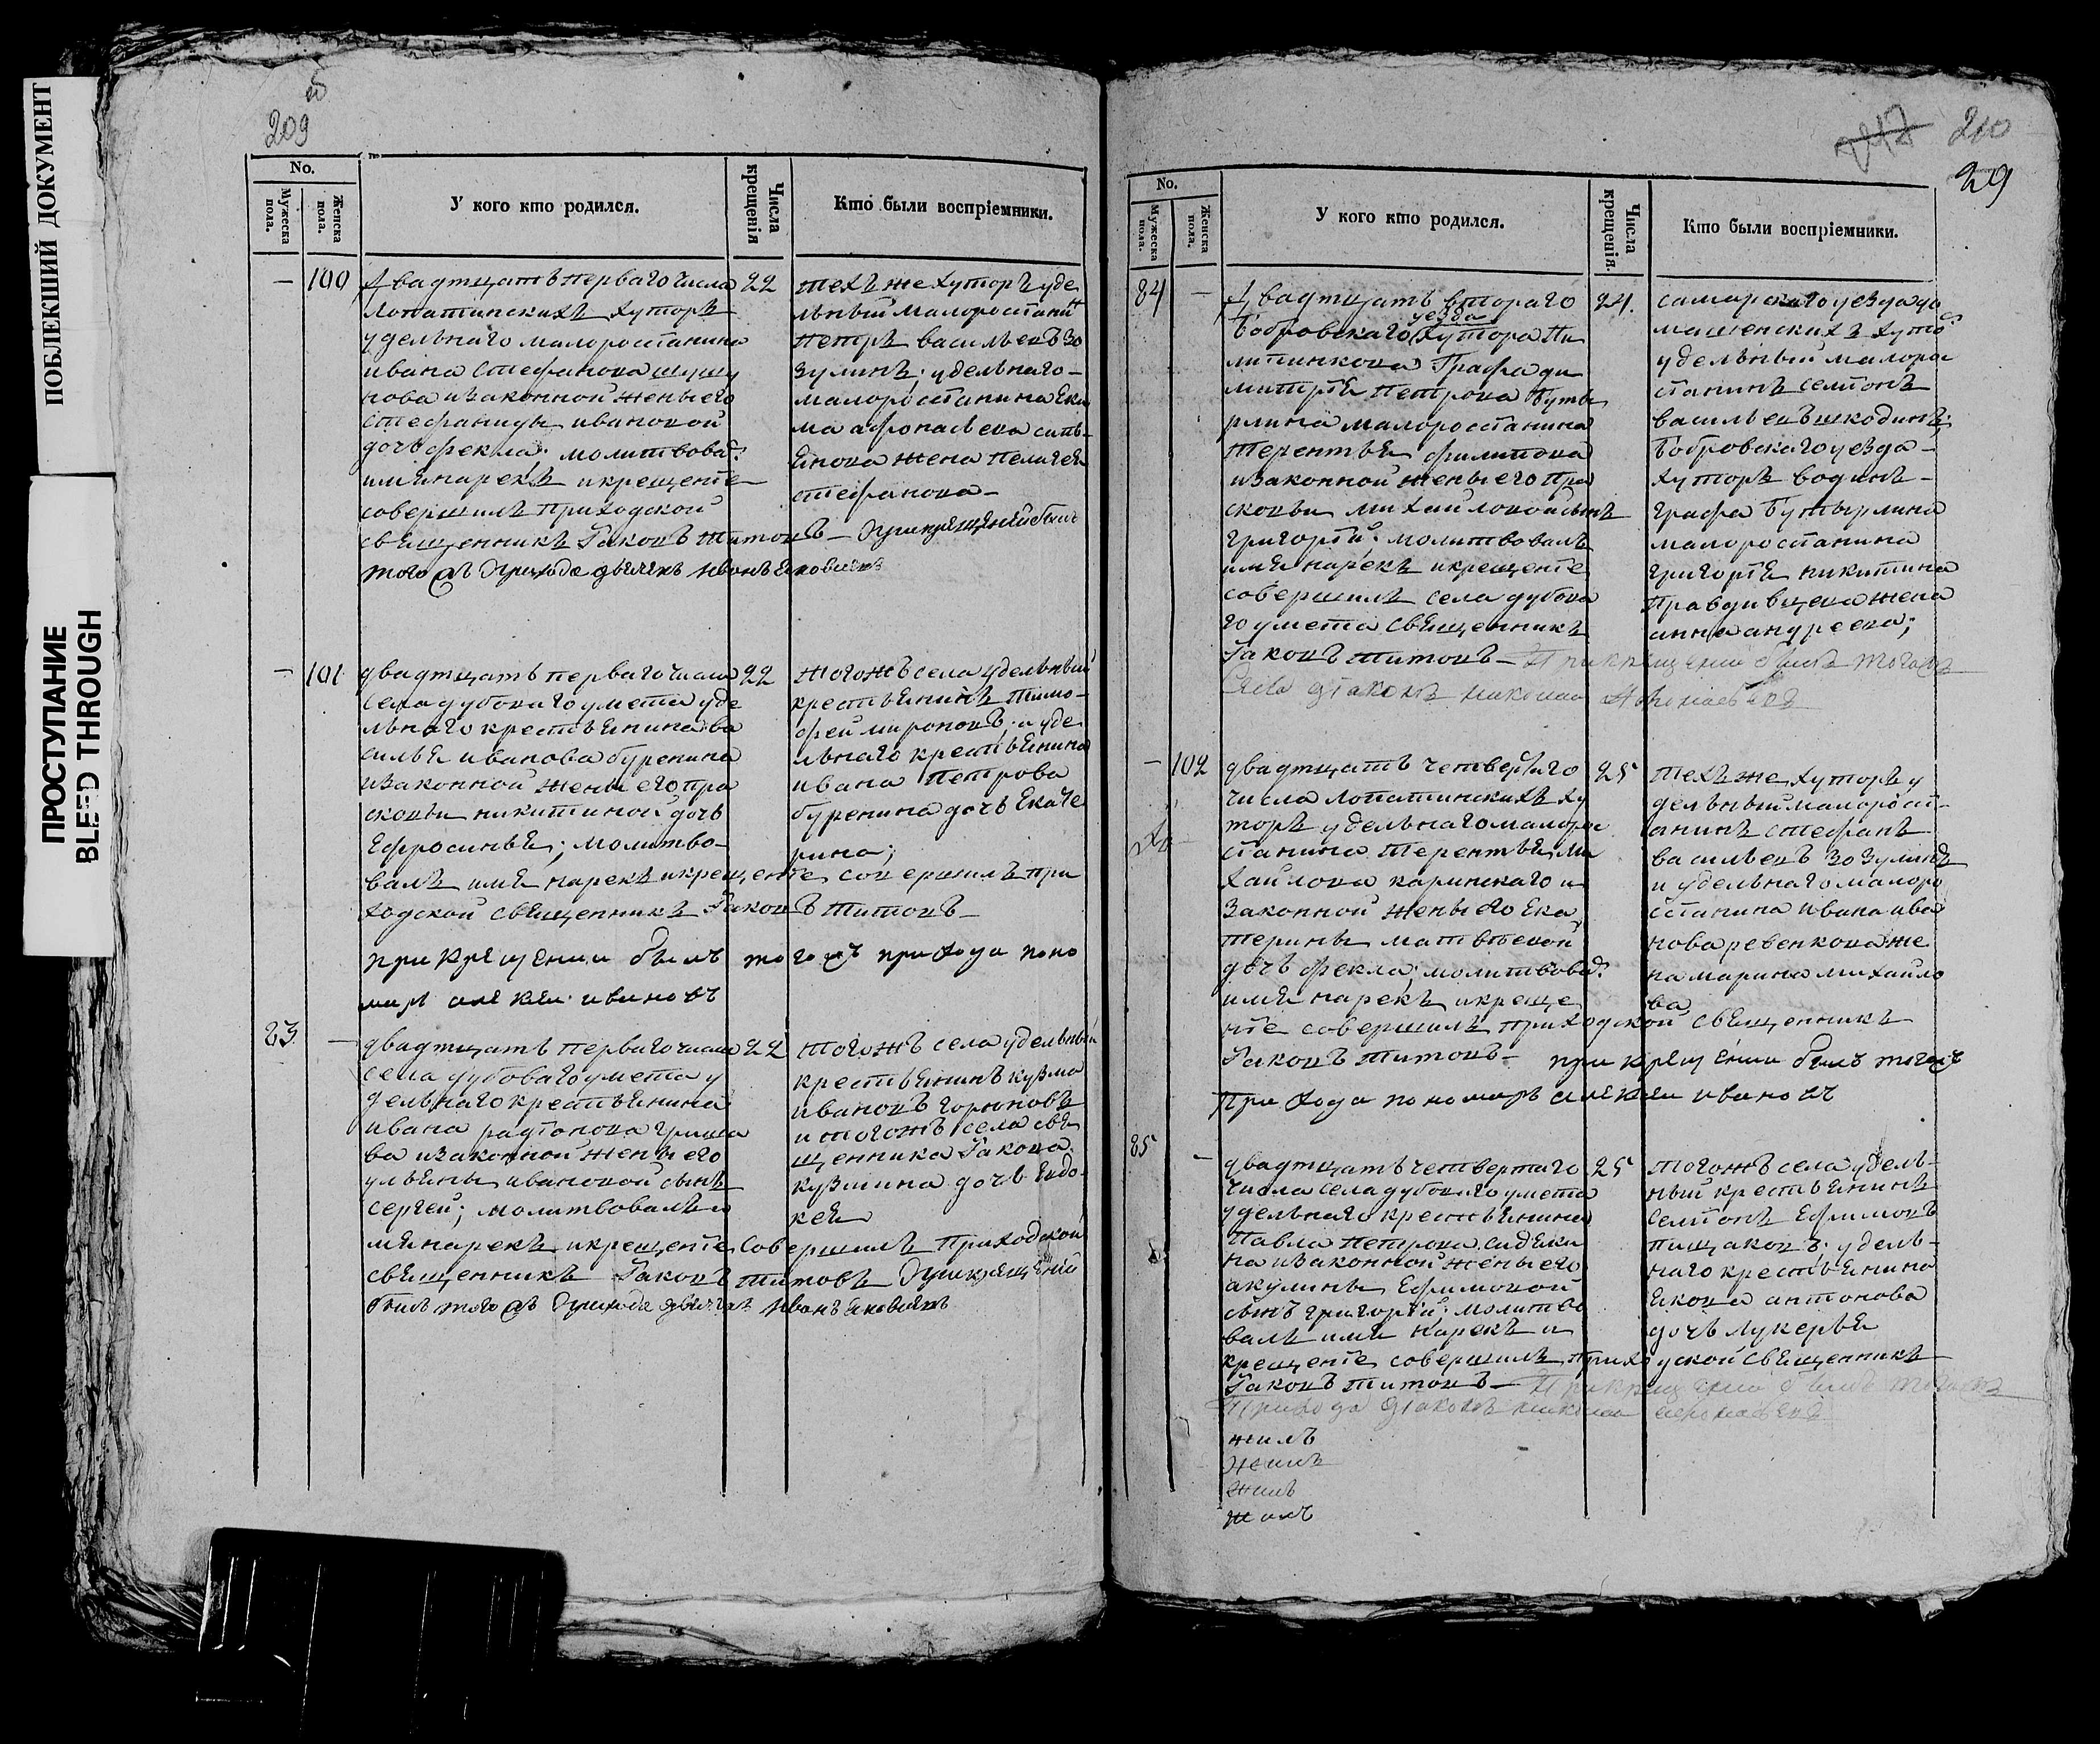 ПОБЛЕКШИЙ ДОКУМЕНТ
ПРОСТУПАНИЕ
BLEED THROUGH
209
No.
Мужеска пола.
Женска пола.
У кого кто родился.
Числа крещенія
Кто были воспріемники.
— 100 двадтцать перваго числа 22
Лопатинскихъ хуторъ
удельнаго малоросіанина
ивана Стефанова
нова изаконной жены его
Стефаниды ивановой
дочь фекла: молитвова:
имя нарекъ икрещеніе
совершилъ приходской
священникъ Іаковъ Титовъ — при крещеніи былъ
тогожъ прихода дьячекъ иванъ яковлевъ
техъ же хуторъ уде
льный малоросіани
Петръ васильевъ Зо
зулинъ: удельнаго
малоросіанина
ма афонасьева
янова жена Пелагея
стефанова
— 101 двадтцать перваго числа 22
села дубоваго умета уде
льнаго крестьянина ва
силья иванова буренина
изаконной жены его пра
сковьи никитиной дочь
Ефросинья; молитво
валъ имя нарекъ икрещеніе совершилъ при
ходской священникъ Іаковъ Титовъ
при крещении былъ тогожъ прихода поно
марь алексеи ивановъ
тогожъ села удельный
крестьянинъ тимо
фей мироновъ; и уде
льнаго крестьянина
ивана Петрова
буренина дочь Екате
рина;
83 — двадтцать перваго числа 22
села дубоваго умета у
дельнаго крестьянина
ивана радіонова гриша
ва изаконной жены его
ульяны ивановой сынъ
сергей; молитвовалъ и
мя нарекъ икрещеніе совершилъ Приходской
священникъ Іаковъ титовъ при крещеніи
былъ тогожъ прихода дьячекъ иванъ яковлевъ
тогожъ села удельный
крестьянинъ кузма
ивановъ горюновъ
и тогожъ села свя
щенника Іакова
кузмина дочь Евдо
кея
210
29
No.
Мужеска пола.
Женска пола.
У кого кто родился.
Числа крещенія.
Кто были воспріемники.
84 — Двадтцать втораго 24.
уезда
Бобровскаго хутора
Графа ди
митрія Петрова Буты
рлина малоросіанина
Терентья филипова
изаконной жены его пра
сковьи михайловой сынъ
григорій: молитвовалъ
имя нарекъ икрещеніе
совершилъ села дубова
го умета священникъ
Іаковъ титовъ — При крещении былъ тогожъ
села діаконъ николай
самарскаго уезда
машенскихъ хуто
удельный малоро
сіанинъ семіонъ
васильевъ шкодинъ;
бобровскаго уезда
хуторъ водинъ
графа Бутырлина
малоросіанина
григорія никитина
Правдивцева жена
анна андреева;
— 102 двадтцать четвертаго 25
числа лопатинскихъ ху
торъ удельнаго малоро
сіанина Терентья ми
хайлова каринскаго и
законной жены его Ека
терины матвеевой
дочь фекла; молитвова:
имя нарекъ икреще
ніе совершилъ приходской священникъ
Іаковъ титовъ — при крещении былъ тогожъ
прихода пономарь алексеи ивановъ
техъ же хуторъ у
дельный малоросі
анинъ стефанъ
васильевъ зозулинъ
и удельнаго малоро
сіанина ивана ива
нова ревенкова же
на марина михайло
ва
85 — двадтцать четвертаго 25
числа села дубоваго умета
удельнаго крестьянина
Павла Петрова сидяки
на изаконной жены его
акулины Ефимовой
сынъ григорій: молитво
валъ имя нарекъ и
крещеніе совершилъ приходской священникъ
Іаковъ титовъ — При крещении былъ тогожъ
Прихода діаконъ николай
тогожъ села удель
ный крестьянинъ
Семіонъ Ефимовъ
пищаковъ; удель
наго крестьянина
якова антонова
дочь лукерья